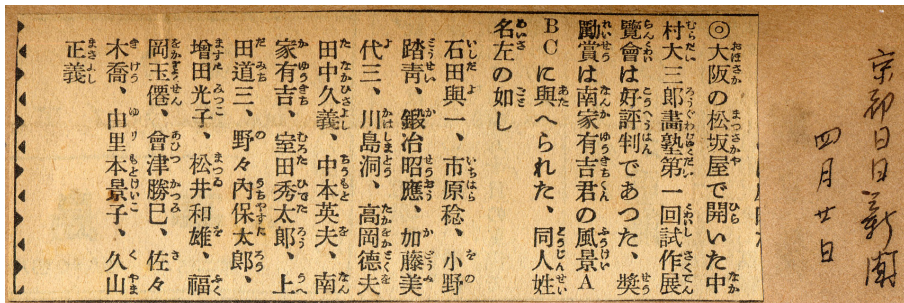 京都日日新聞
四月廿日
◎大阪の松坂屋で開いた中
村大三郎畵塾第一回試作展
覽會は好評判であつた、奬
勵賞は南家有吉君の風景A
BCに與へられた、同人姓
名左の如し
石田與一、市原稔、小野
踏靑、鍛冶昭應、加藤美
代三、川島洞、高岡德夫
田中久義、中本英夫、南
家有吉、室田秀太郞、上
田道三、野々內保太郞、
增田光子、松井和雄、福
岡玉僊、會津勝巳、佐々
木喬、由里本景子、久山
正義